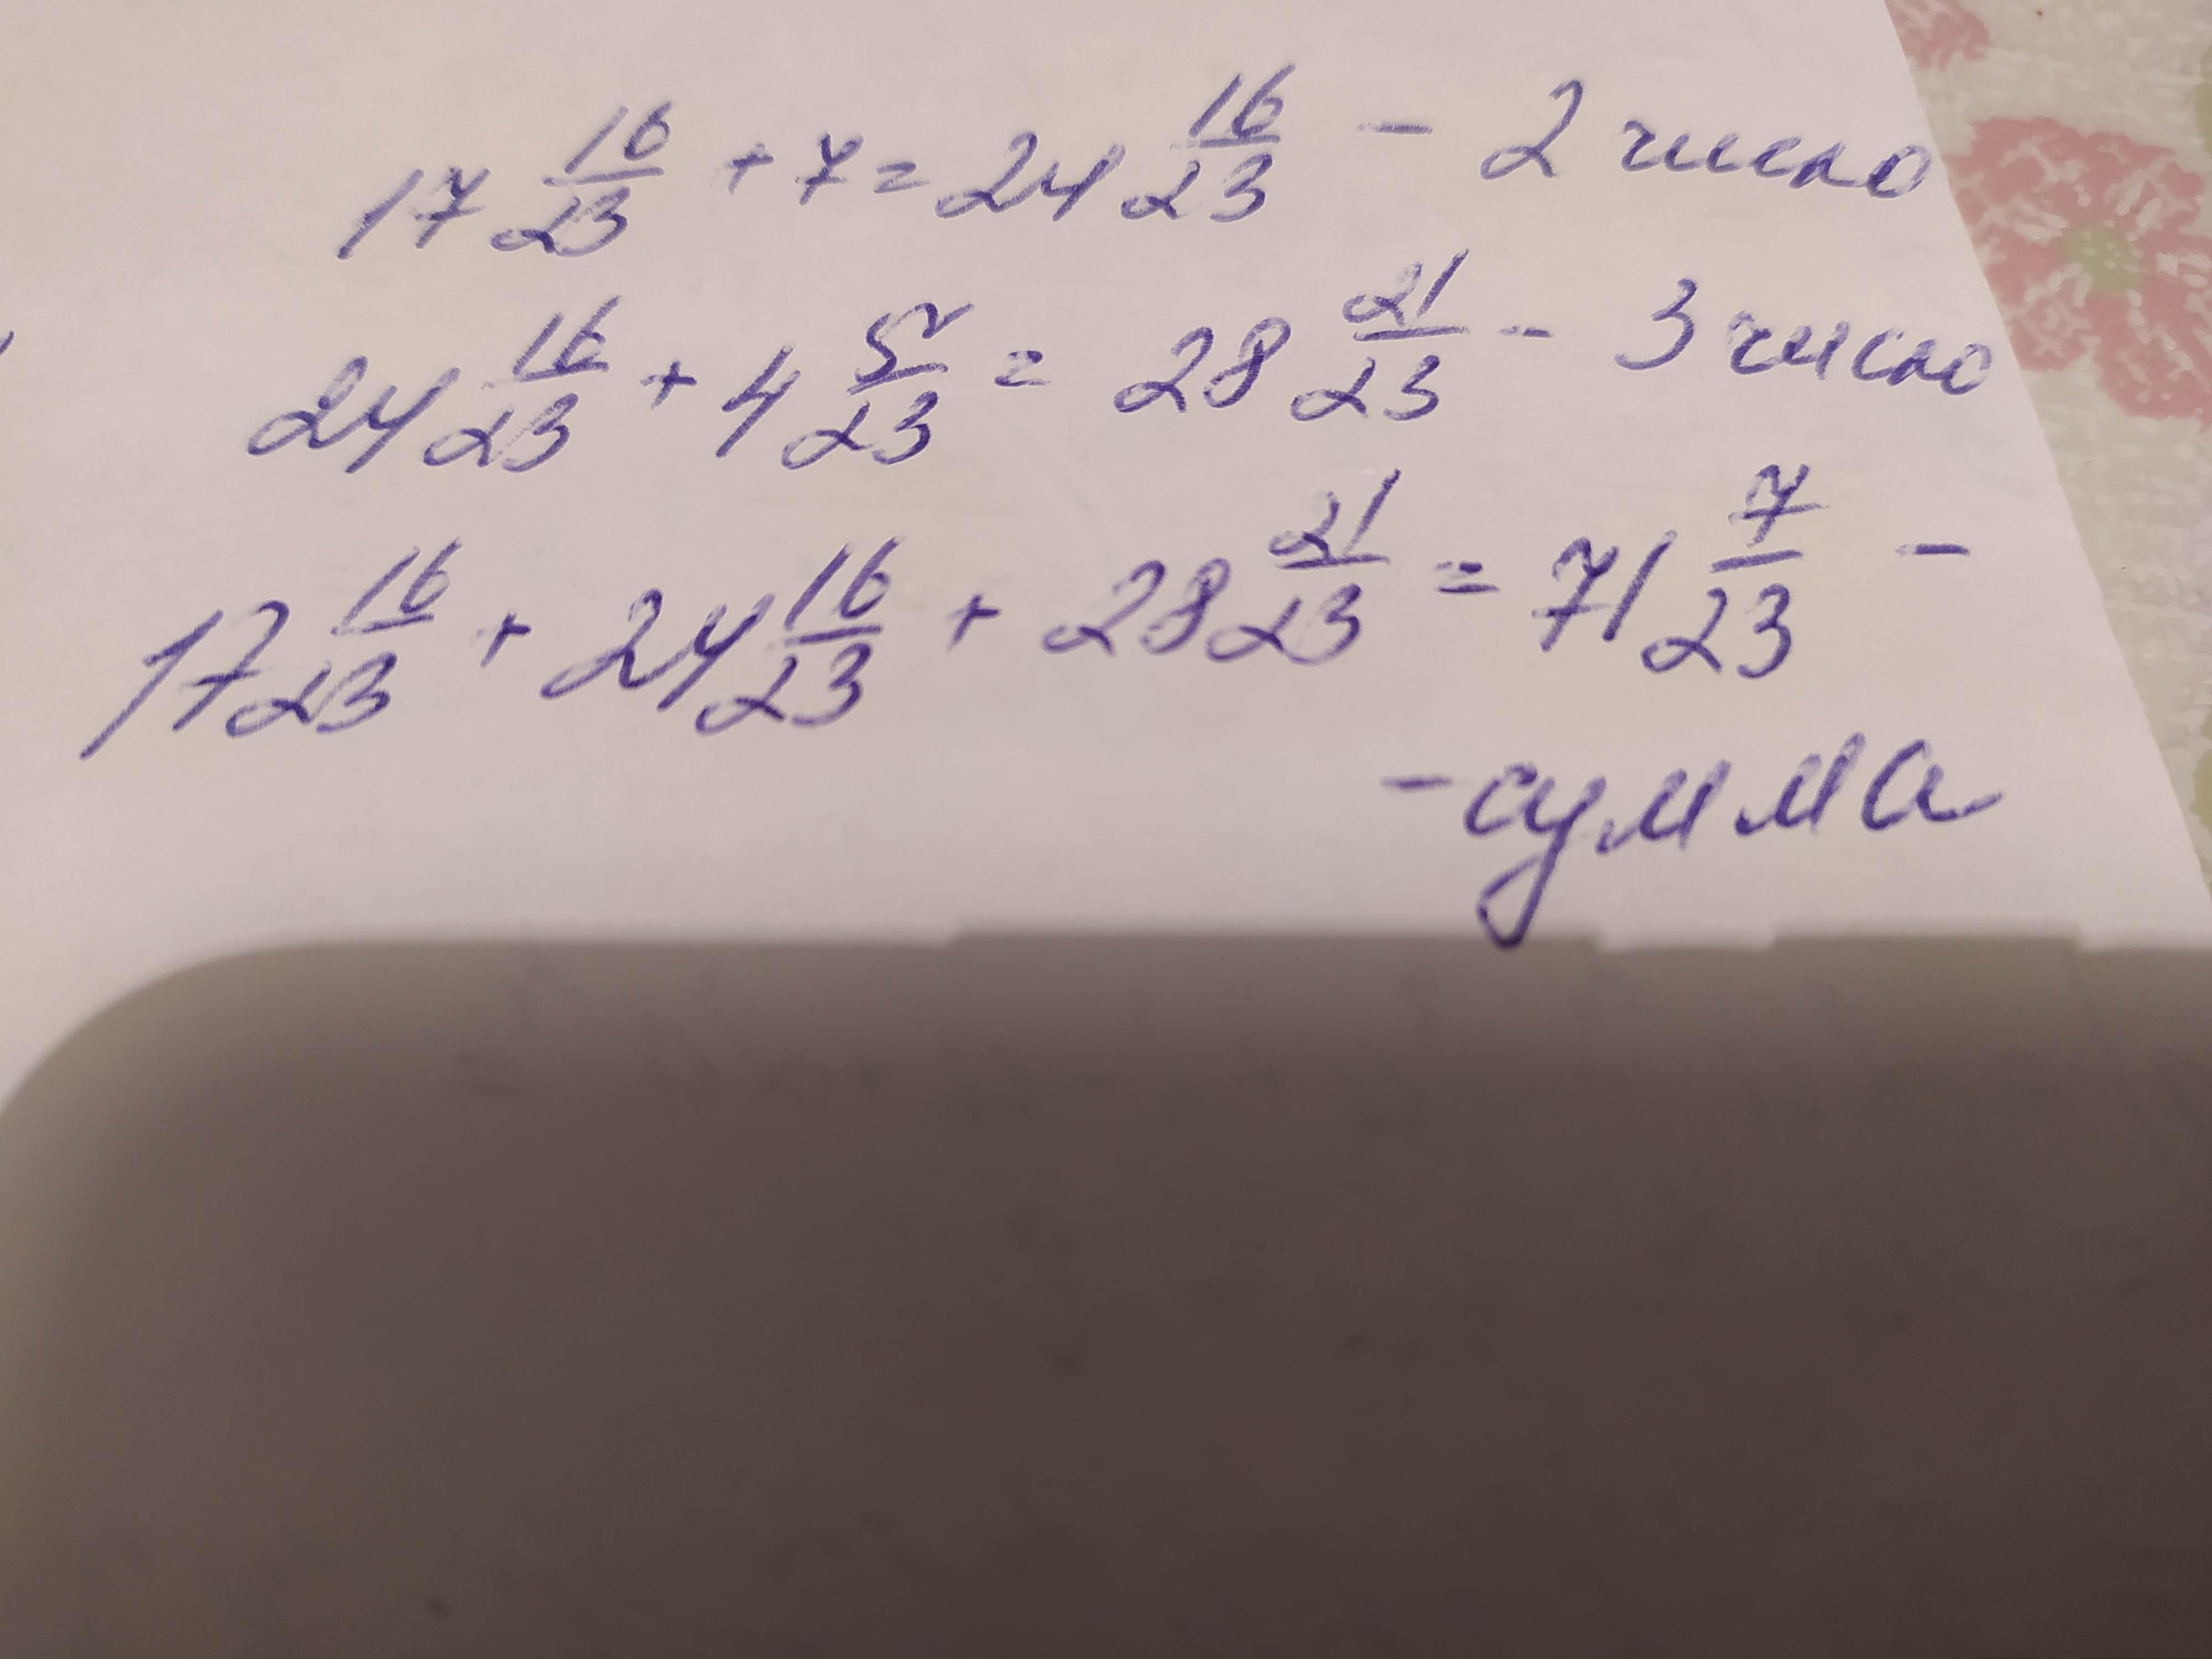 17 16/23 + 7 = 24 16/23 - 2 число
24 16/23 + 4 5/23 = 28 21/23 - 3 число
17 16/23 + 24 16/23 + 28 21/23 = 71 7/23 -
- сумма